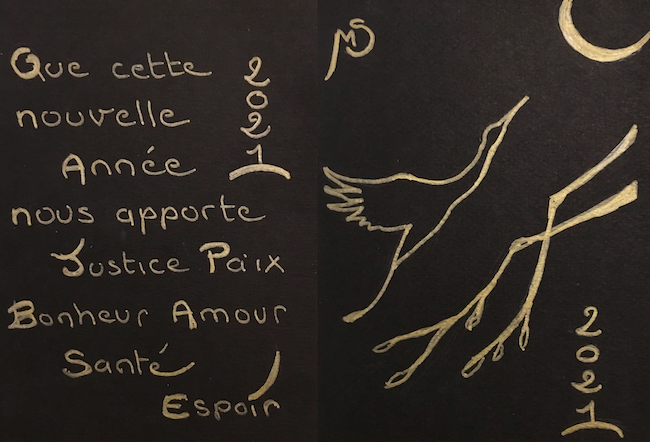 Que cette
nouvelle
Année
nous apporte
Justice Paix
Bonheur Amour
Santé
Espoir
2021
MS
2021